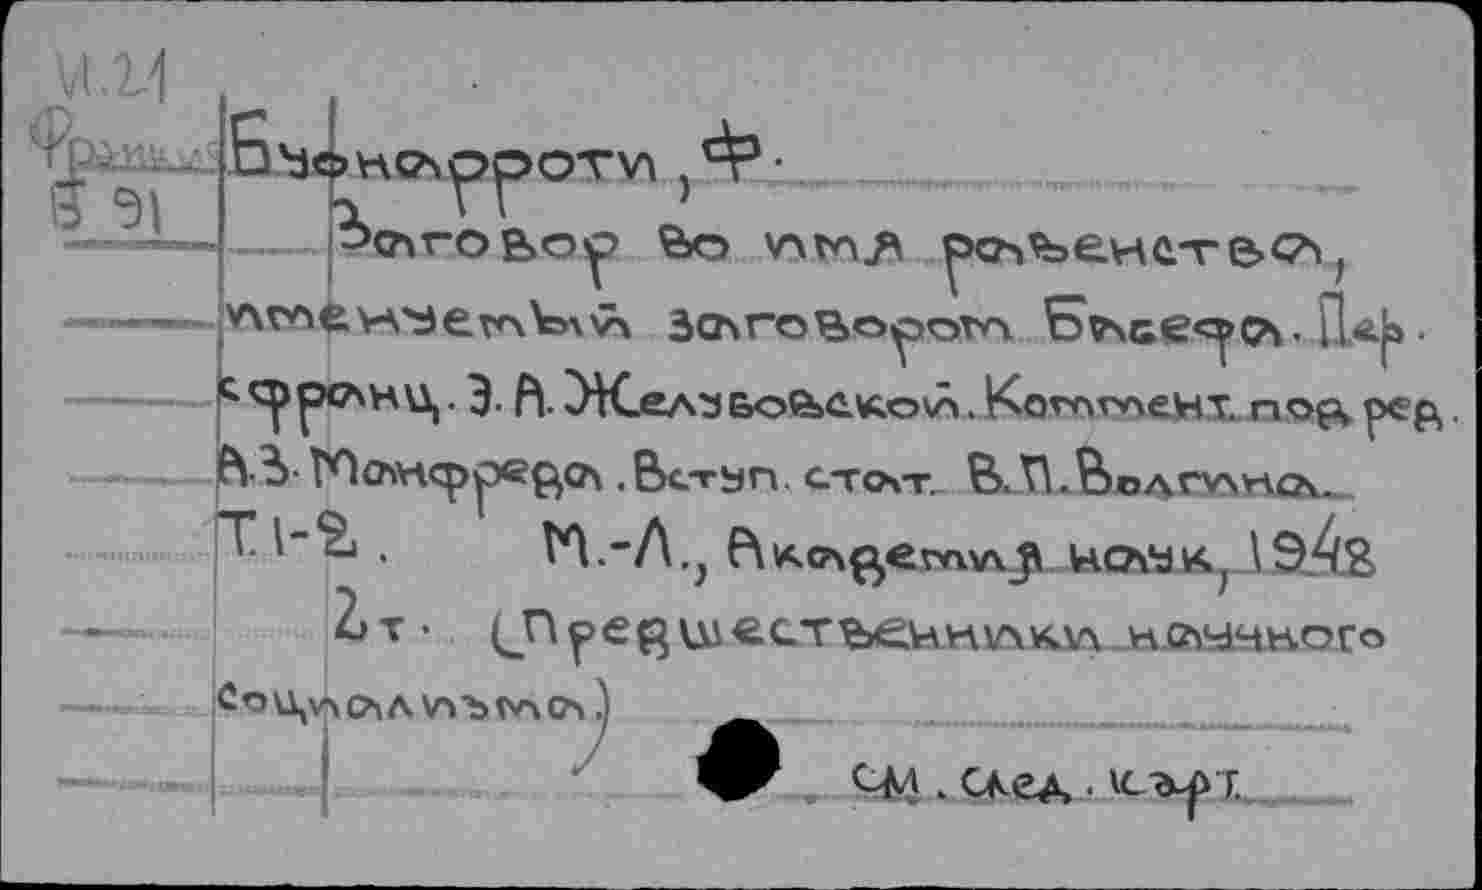 И.21
Франц.
Б 91
Буонарроти, Ф.
Заговор во имя равенства,
именуемый заговором Бабефа. Пер.
с франц. Э. А. Желубовской. Коммент. под ред.
А.З. Манфреда. Вступ. стат. В.П. Волгина.
Т.1-2. М.-Л., Академия наук, 1948
2т. (Предшественники научного
социализма.)
См. след. карт.